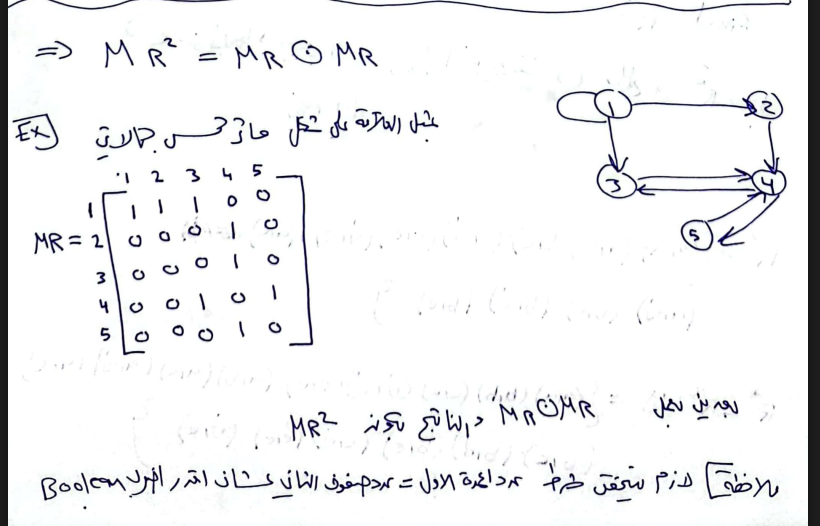 ⇒ M R² = MR ⊙ MR
Ex] مثل العلاقة على شكل
1 2 3 4 5
1 1 1 1 0 0
MR = 2 0 0 0 1 0
3 0 0 0 1 0
4 0 0 1 0 1
5 0 0 0 1 0
1 2
3 4
5
بعدين نعمل MR⊙MR والناتج بكون MR²
ملاظة] لازم يتحقق شرط عدد اعمدة الاول = عدد صفوف الثاني عشان اقدر اضرب Boolean